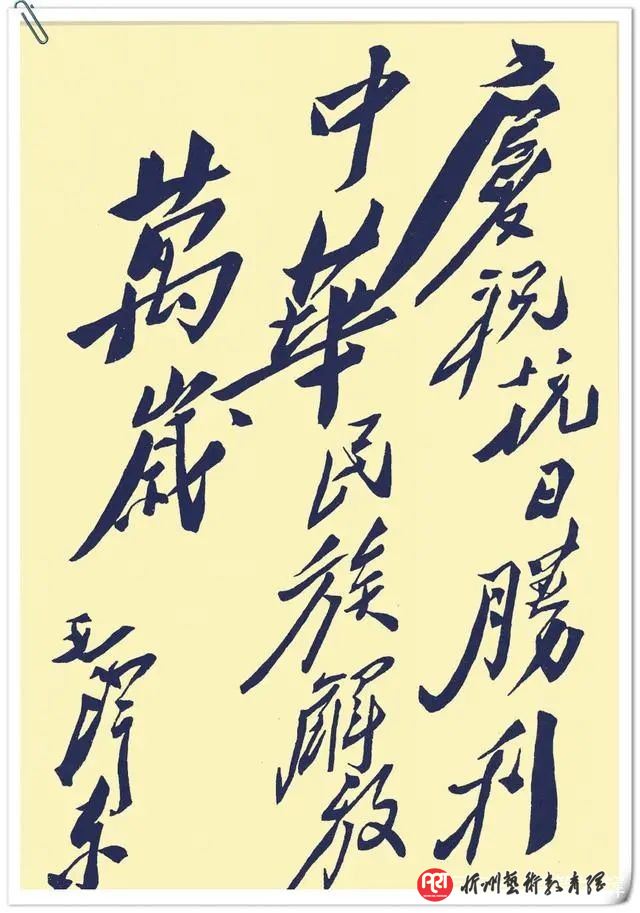 慶祝抗日勝利
中華民族解放
萬歲
毛澤东
ART 忻州藝術教育館